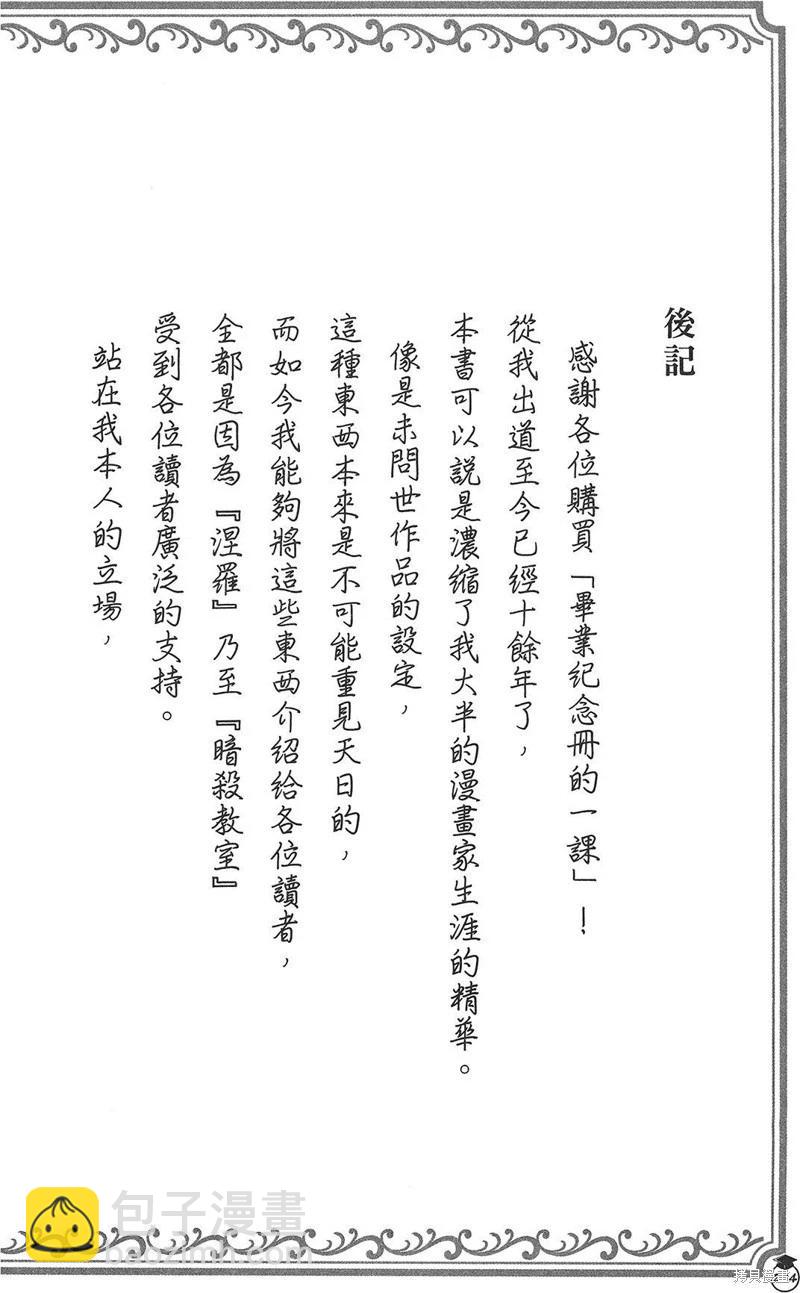 後記
感謝各位購買「畢業紀念冊的一課」！
從我出道至今已經十餘年了，
本書可以說是濃縮了我大半的漫畫家生涯的精華。
像是未問世作品的設定，
這種東西本來是不可能重見天日的，
而如今我能夠將這些東西介紹給各位讀者，
全都是因為『涅羅』乃至『暗殺教室』
受到各位讀者廣泛的支持。
站在我本人的立場，
包子漫畫
baozimh.com
拷貝漫畫